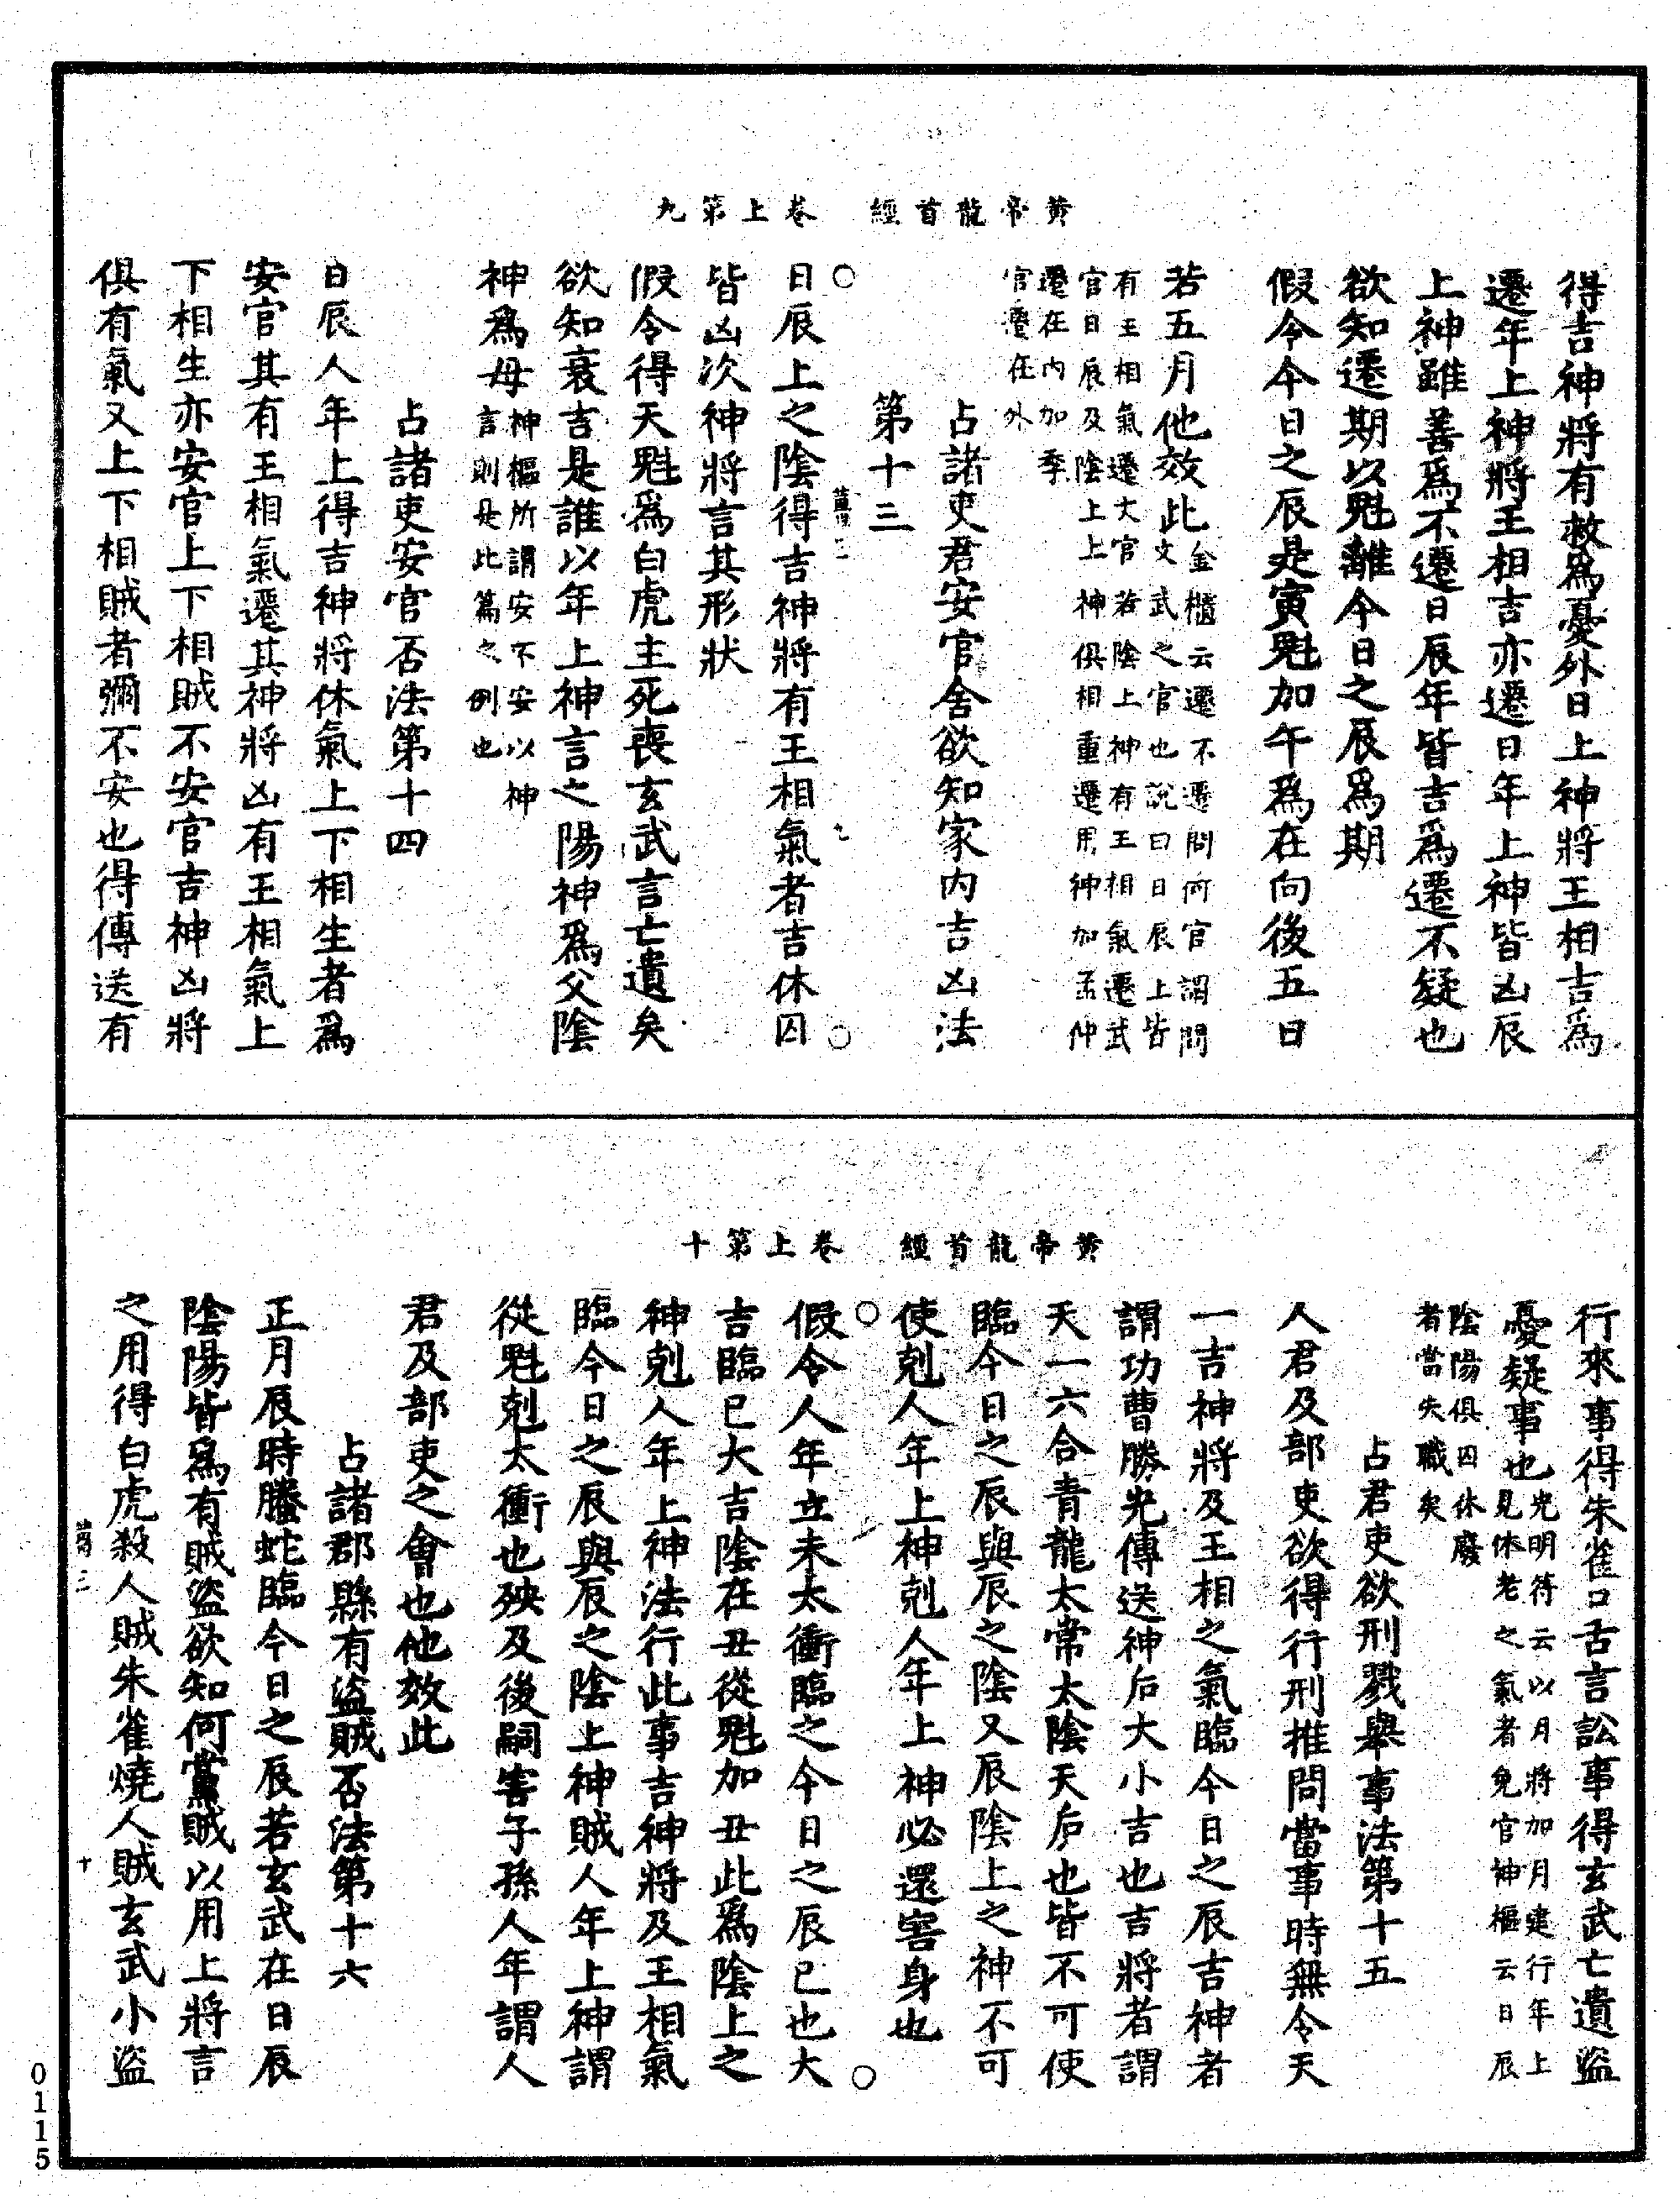 黃帝龍首經　卷上第九
得吉神將有救爲憂外日上神將王相吉爲
遷年上神將王相吉亦遷日年上神皆凶辰
上神雖善爲不遷日辰年皆吉爲遷不疑也
欲知遷期以魁離今日之辰爲期
假令今日之辰是寅魁加午爲在向後五日
若五月他效此
金櫃云遷不遷問何官謂問
文武之官也說曰日辰上皆
有王相氣遷文官若陰上神有王相氣遷武
官日辰及陰上上神俱相重遷用神加孟仲
遷在內加季
官遷在外
占諸吏君安官舍欲知家內吉凶法
第十三
日辰上之陰得吉神將有王相氣者吉休囚
皆凶次神將言其形狀
假令得天魁爲白虎主死喪玄武言亡遺矣
欲知衰吉是誰以年上神言之陽神爲父陰
神爲母
神樞所謂安不安以神
言則是此篇之例也
占諸吏安官否法第十四
日辰人年上得吉神將休氣上下相生者爲
安官其有王相氣遷其神將凶有王相氣上
下相生亦安官上下相賊不安官吉神凶將
俱有氣又上下相賊者彌不安也得傳送有
黃帝龍首經　卷上第十
行來事得朱雀口舌言訟事得玄武亡遺盜
憂疑事也
光明符云以月將加月建行年上
見休老之氣者免官神樞云日辰
陰陽俱囚休廢
者當失職矣
占君吏欲刑戮舉事法第十五
人君及部吏欲得行刑推問當事時無令天
一吉神將及王相之氣臨今日之辰吉神者
謂功曹勝光傳送神后大小吉也吉將者謂
天一六合青龍太常太陰天后也皆不可使
臨今日之辰與辰之陰又辰陰上之神不可
使剋人年上神剋人年上神必還害身也
假令人年立未太衝臨之今日之辰巳也大
吉臨巳大吉陰在丑從魁加丑此爲陰上之
神剋人年上神法行此事吉神將及王相氣
臨今日之辰與辰之陰上神賊人年上神謂
從魁剋太衝也殃及後嗣害子孫人年謂人
君及部吏之會也他效此
占諸郡縣有盜賊否法第十六
正月辰時螣蛇臨今日之辰若玄武在日辰
陰陽皆爲有賊盜欲知何黨賊以用上將言
之用得白虎殺人賊朱雀燒人賊玄武小盜
0115